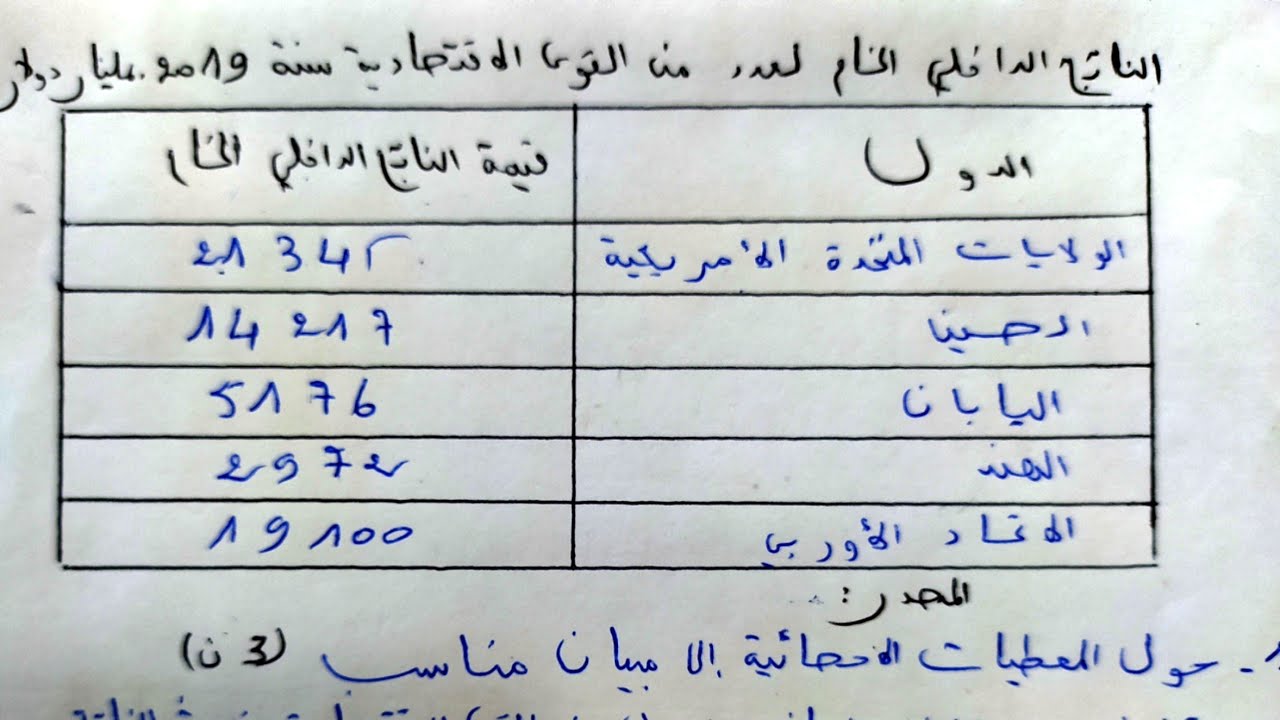 الناتج الداخلي الخام لعدد من القوى الاقتصادية سنة 2019. بمليار دولار
الدول	قيمة الناتج الداخلي الخام
الولايات المتحدة الأمريكية	21 345
الصين	14 217
اليابان	5176
الهند	2972
الاتحاد الأوربي	19 100
المصدر:
1- حول المعطيات الاحصائية إلى مبيان مناسب (3 ن)